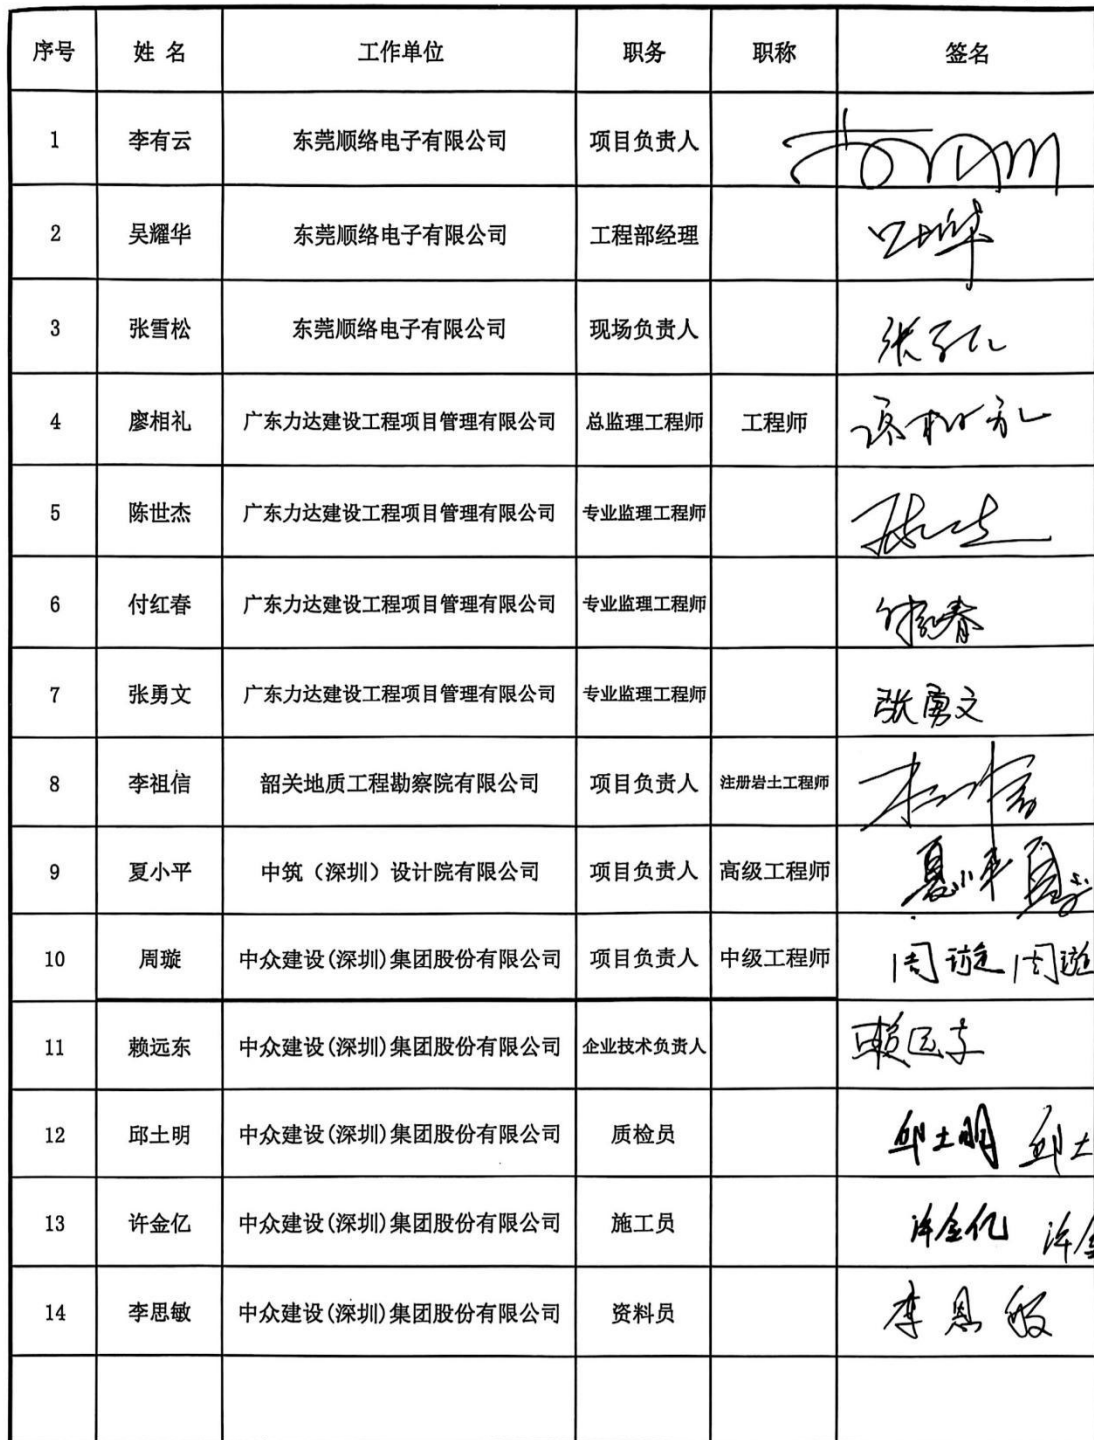 序号 姓 名 工作单位 职务 职称 签名
1 李有云 东莞顺络电子有限公司 项目负责人
2 吴耀华 东莞顺络电子有限公司 工程部经理
3 张雪松 东莞顺络电子有限公司 现场负责人
4 廖相礼 广东力达建设工程项目管理有限公司 总监理工程师 工程师
5 陈世杰 广东力达建设工程项目管理有限公司 专业监理工程师
6 付红春 广东力达建设工程项目管理有限公司 专业监理工程师 付红春
7 张勇文 广东力达建设工程项目管理有限公司 专业监理工程师 张勇文
8 李祖信 韶关地质工程勘察院有限公司 项目负责人 注册岩土工程师
9 夏小平 中筑（深圳）设计院有限公司 项目负责人 高级工程师 夏小平
10 周璇 中众建设(深圳)集团股份有限公司 项目负责人 中级工程师 周璇 周璇
11 赖远东 中众建设(深圳)集团股份有限公司 企业技术负责人 赖远东
12 邱土明 中众建设(深圳)集团股份有限公司 质检员 邱土明 邱土
13 许金亿 中众建设(深圳)集团股份有限公司 施工员 许金亿 许金
14 李思敏 中众建设(深圳)集团股份有限公司 资料员 李思敏